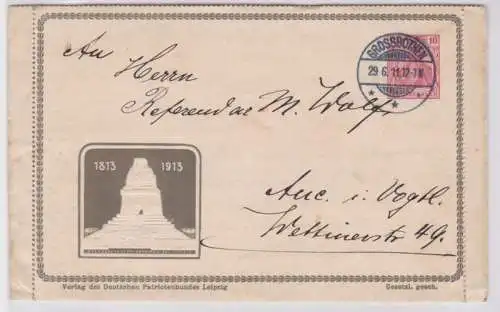 An
Herrn
Referendar M. Wolf
Auc. i. Vogtl.
Wettinerstr 49.
10
GROSSBOTHEN
29.6.11.12-1N.
* *
1813 1913
Verlag des Deutschen Patriotenbundes Leipzig
Gesetzl. gesch.